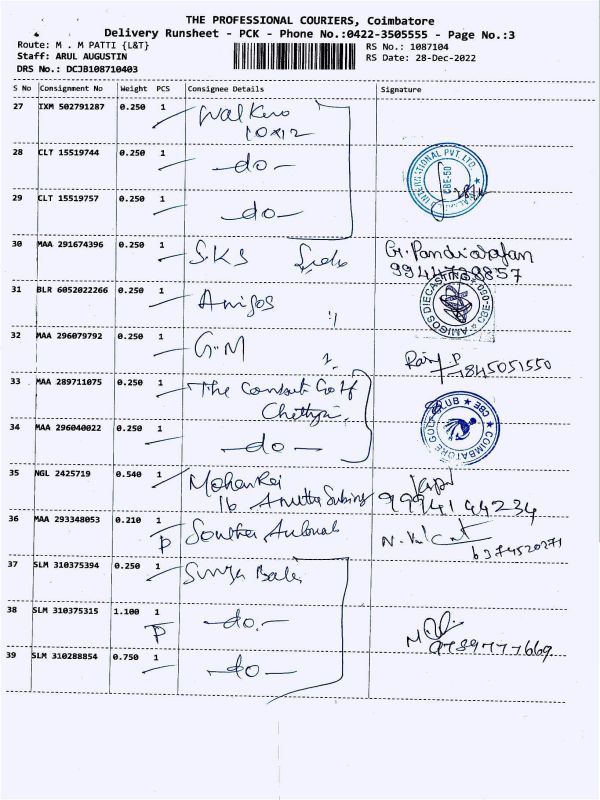 THE PROFESSIONAL COURIERS, Coimbatore
Delivery Runsheet - PCK - Phone No.:0422-3505555 - Page No.:3
Route: M . M PATTI {L&T}
RS No.: 1087104
Staff: ARUL AUGUSTIN
RS Date: 28-Dec-2022
DRS No.: DCJB108710403
S No Consignment No Weight PCS Consignee Details Signature
27 IXM 502791287 0.250 1
10x12
28 CLT 15519744 0.250 1 -do-
INTERNATIONAL PVT. LTD.
CBE-50
29 CLT 15519757 0.250 1 -do-
30 MAA 291674396 0.250 1 S.K.S
G. Pandiarajan
31 BLR 6052022266 0.250 1 Amigos
AMIGOS DIECASTING CBE-050
32 MAA 296079792 0.250 1 G.M
9845051550
33 MAA 289711075 0.250 1 The
COIMBATORE GOLF CLUB CBE
34 MAA 296040022 0.250 1 -do-
35 NGL 2425719 0.540 1
16
9994194234
36 MAA 293348053 0.210 1 P
6374520271
37 SLM 310375394 0.250 1 Surya
38 SLM 310375315 1.100 1 P -do-
9789777669
39 SLM 310288854 0.750 1 -do-